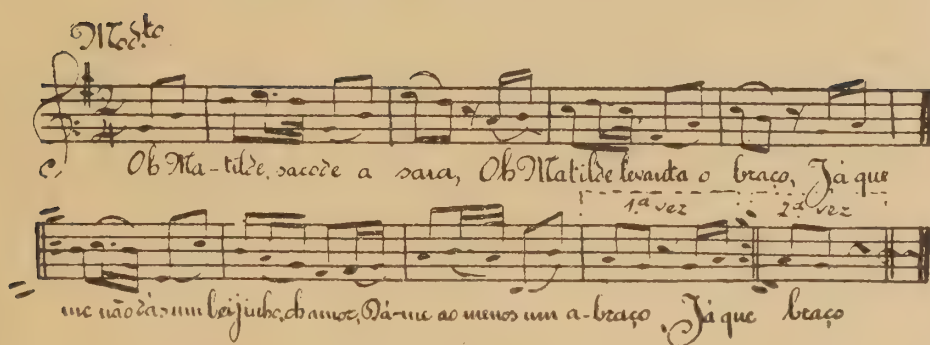 Mod.to
Oh Ma-tilde, sacode a saia, Oh Matilde levanta o braço, Já que
1.ª vez 2.ª vez
me não dás um beijinho, oh amor, Dá-me ao menos um a-braço. Já que braço